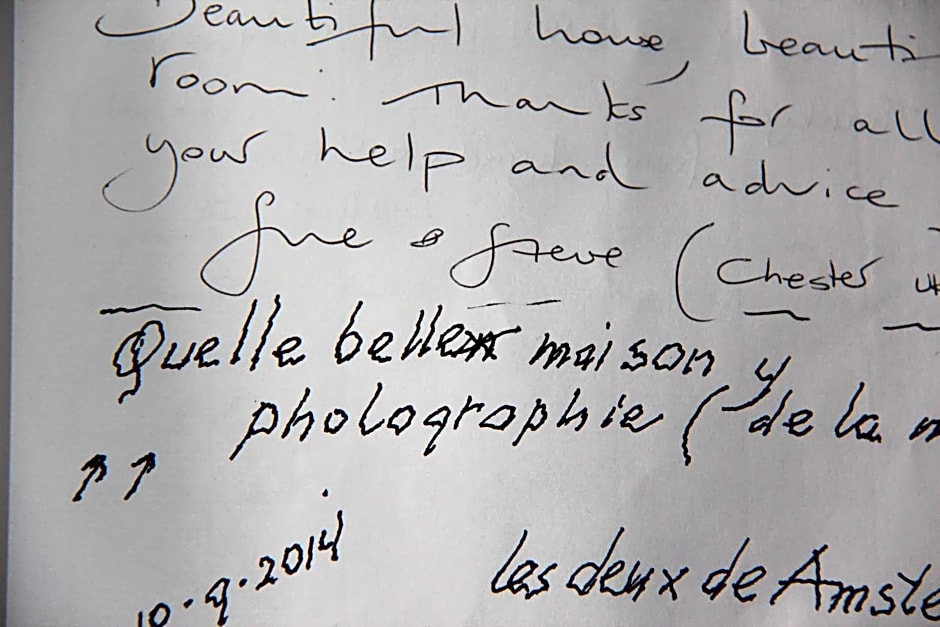 Beautiful house, beauti
room. Thanks for all
your help and advice
Sue & Steve (Chester UK
Quelle belle maison y
photographie (de la m
10.9.2014
Les deux de Amste